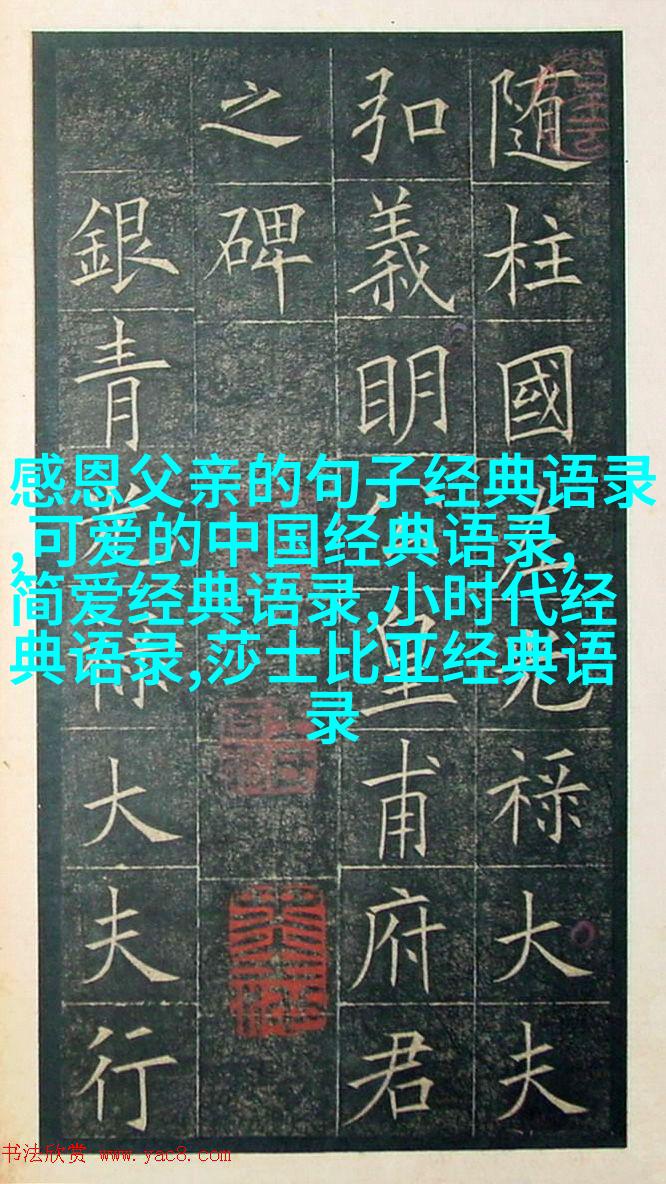 随柱國左光禄大夫
弘義明公皇甫府君
之碑
銀青光禄大夫行
感恩父亲的句子经典语录
,可爱的中国经典语录,
简爱经典语录,小时代经
典语录,莎士比亚经典语
录
书法欣赏 www.yac8.com